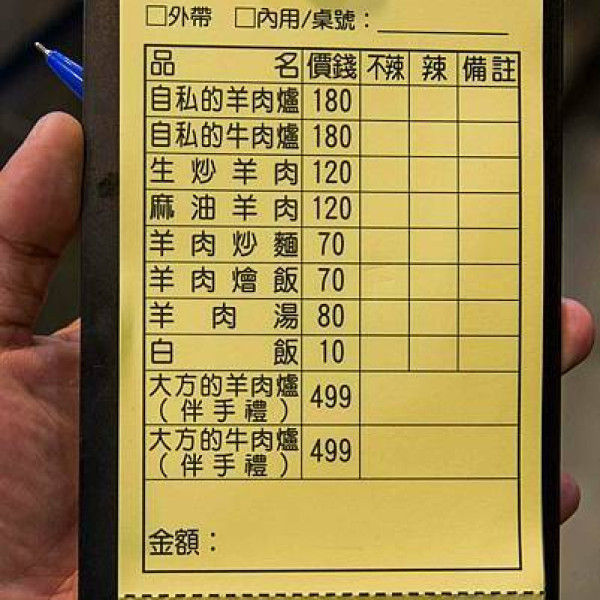 □外帶 □內用/桌號：
品名 價錢 不辣 辣 備註
自私的羊肉爐 180
自私的牛肉爐 180
生炒羊肉 120
麻油羊肉 120
羊肉炒麵 70
羊肉燴飯 70
羊肉湯 80
白飯 10
大方的羊肉爐
（伴手禮） 499
大方的牛肉爐
（伴手禮） 499
金額：